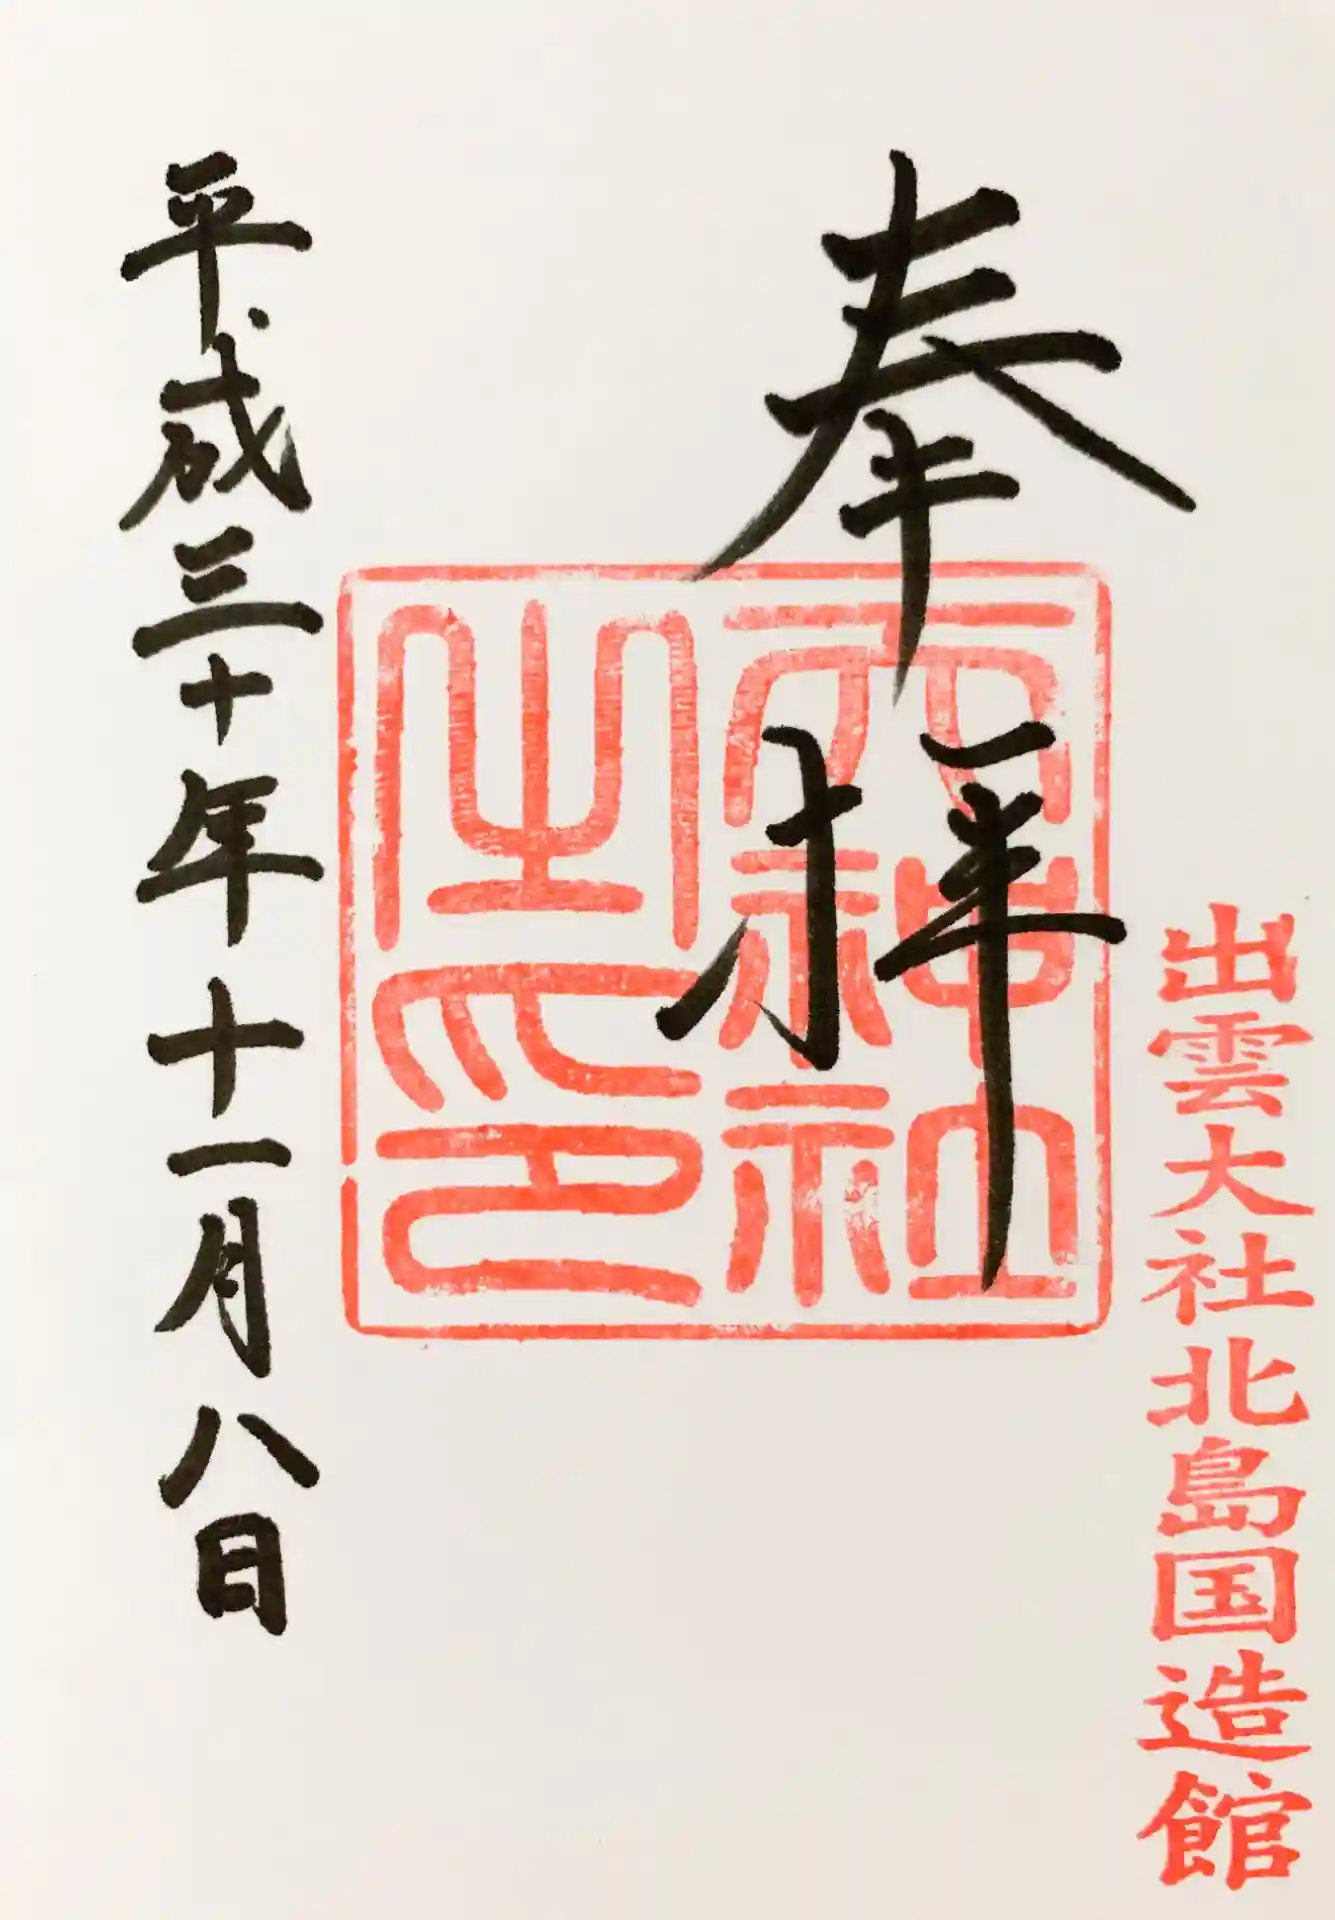 奉拝
出雲大社北島国造館
天神社之印
平成三十年十一月八日